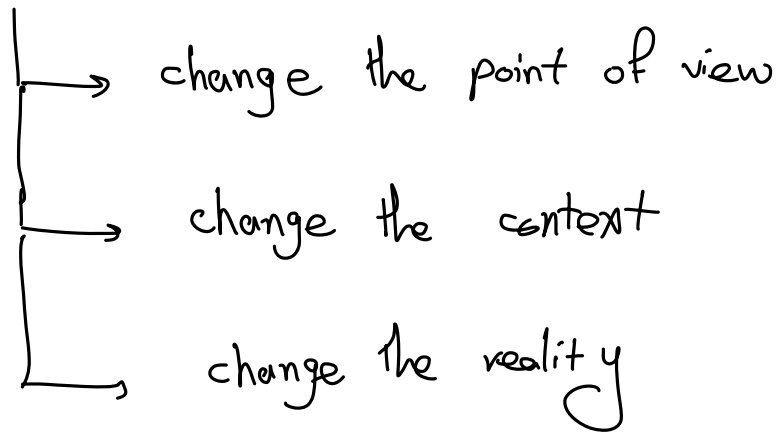 change the point of view
change the context
change the reality